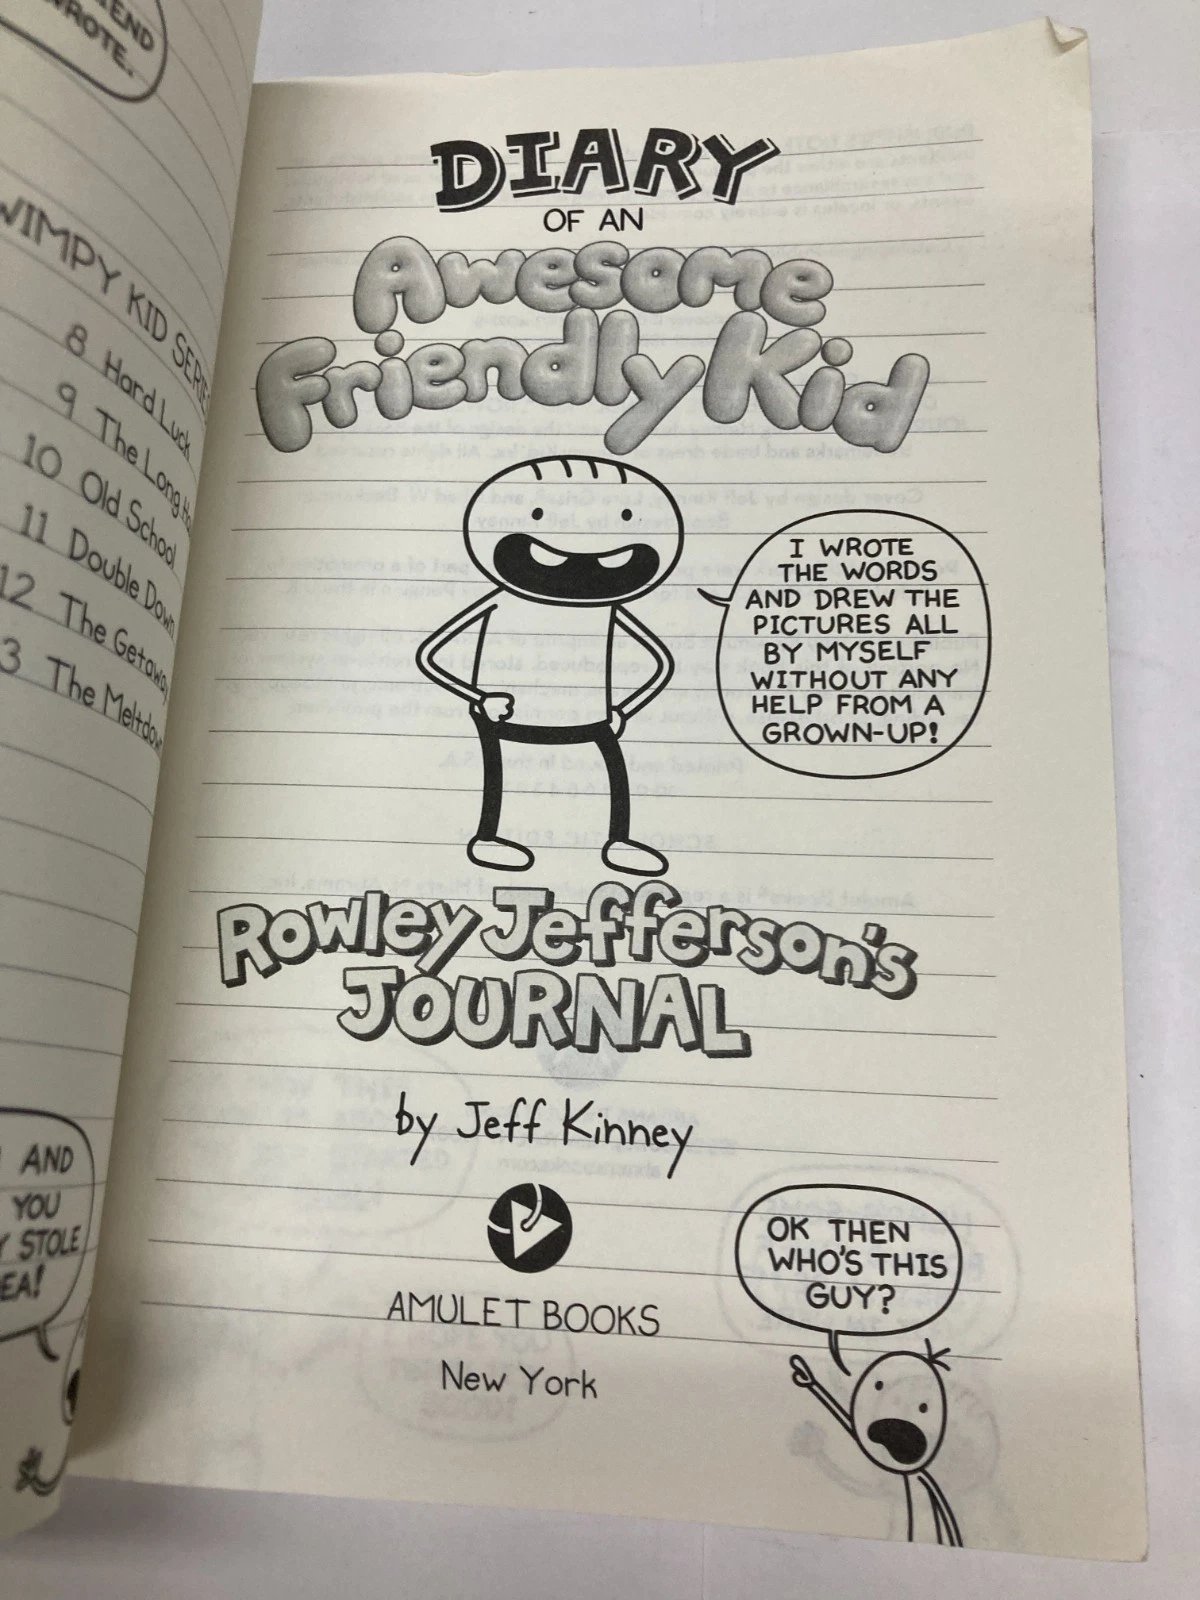 IEND
WROTE.
WIMPY KID SERIES
8 Hard Luck
9 The Long Ha
10 Old School
11 Double Down
12 The Getaway
3 The Meltdown
AND
YOU
STOLE
EA!
DIARY
OF AN
Awesome
Friendly Kid
I WROTE
THE WORDS
AND DREW THE
PICTURES ALL
BY MYSELF
WITHOUT ANY
HELP FROM A
GROWN-UP!
Rowley Jefferson's
JOURNAL
by Jeff Kinney
AMULET BOOKS
New York
OK THEN
WHO'S THIS
GUY?